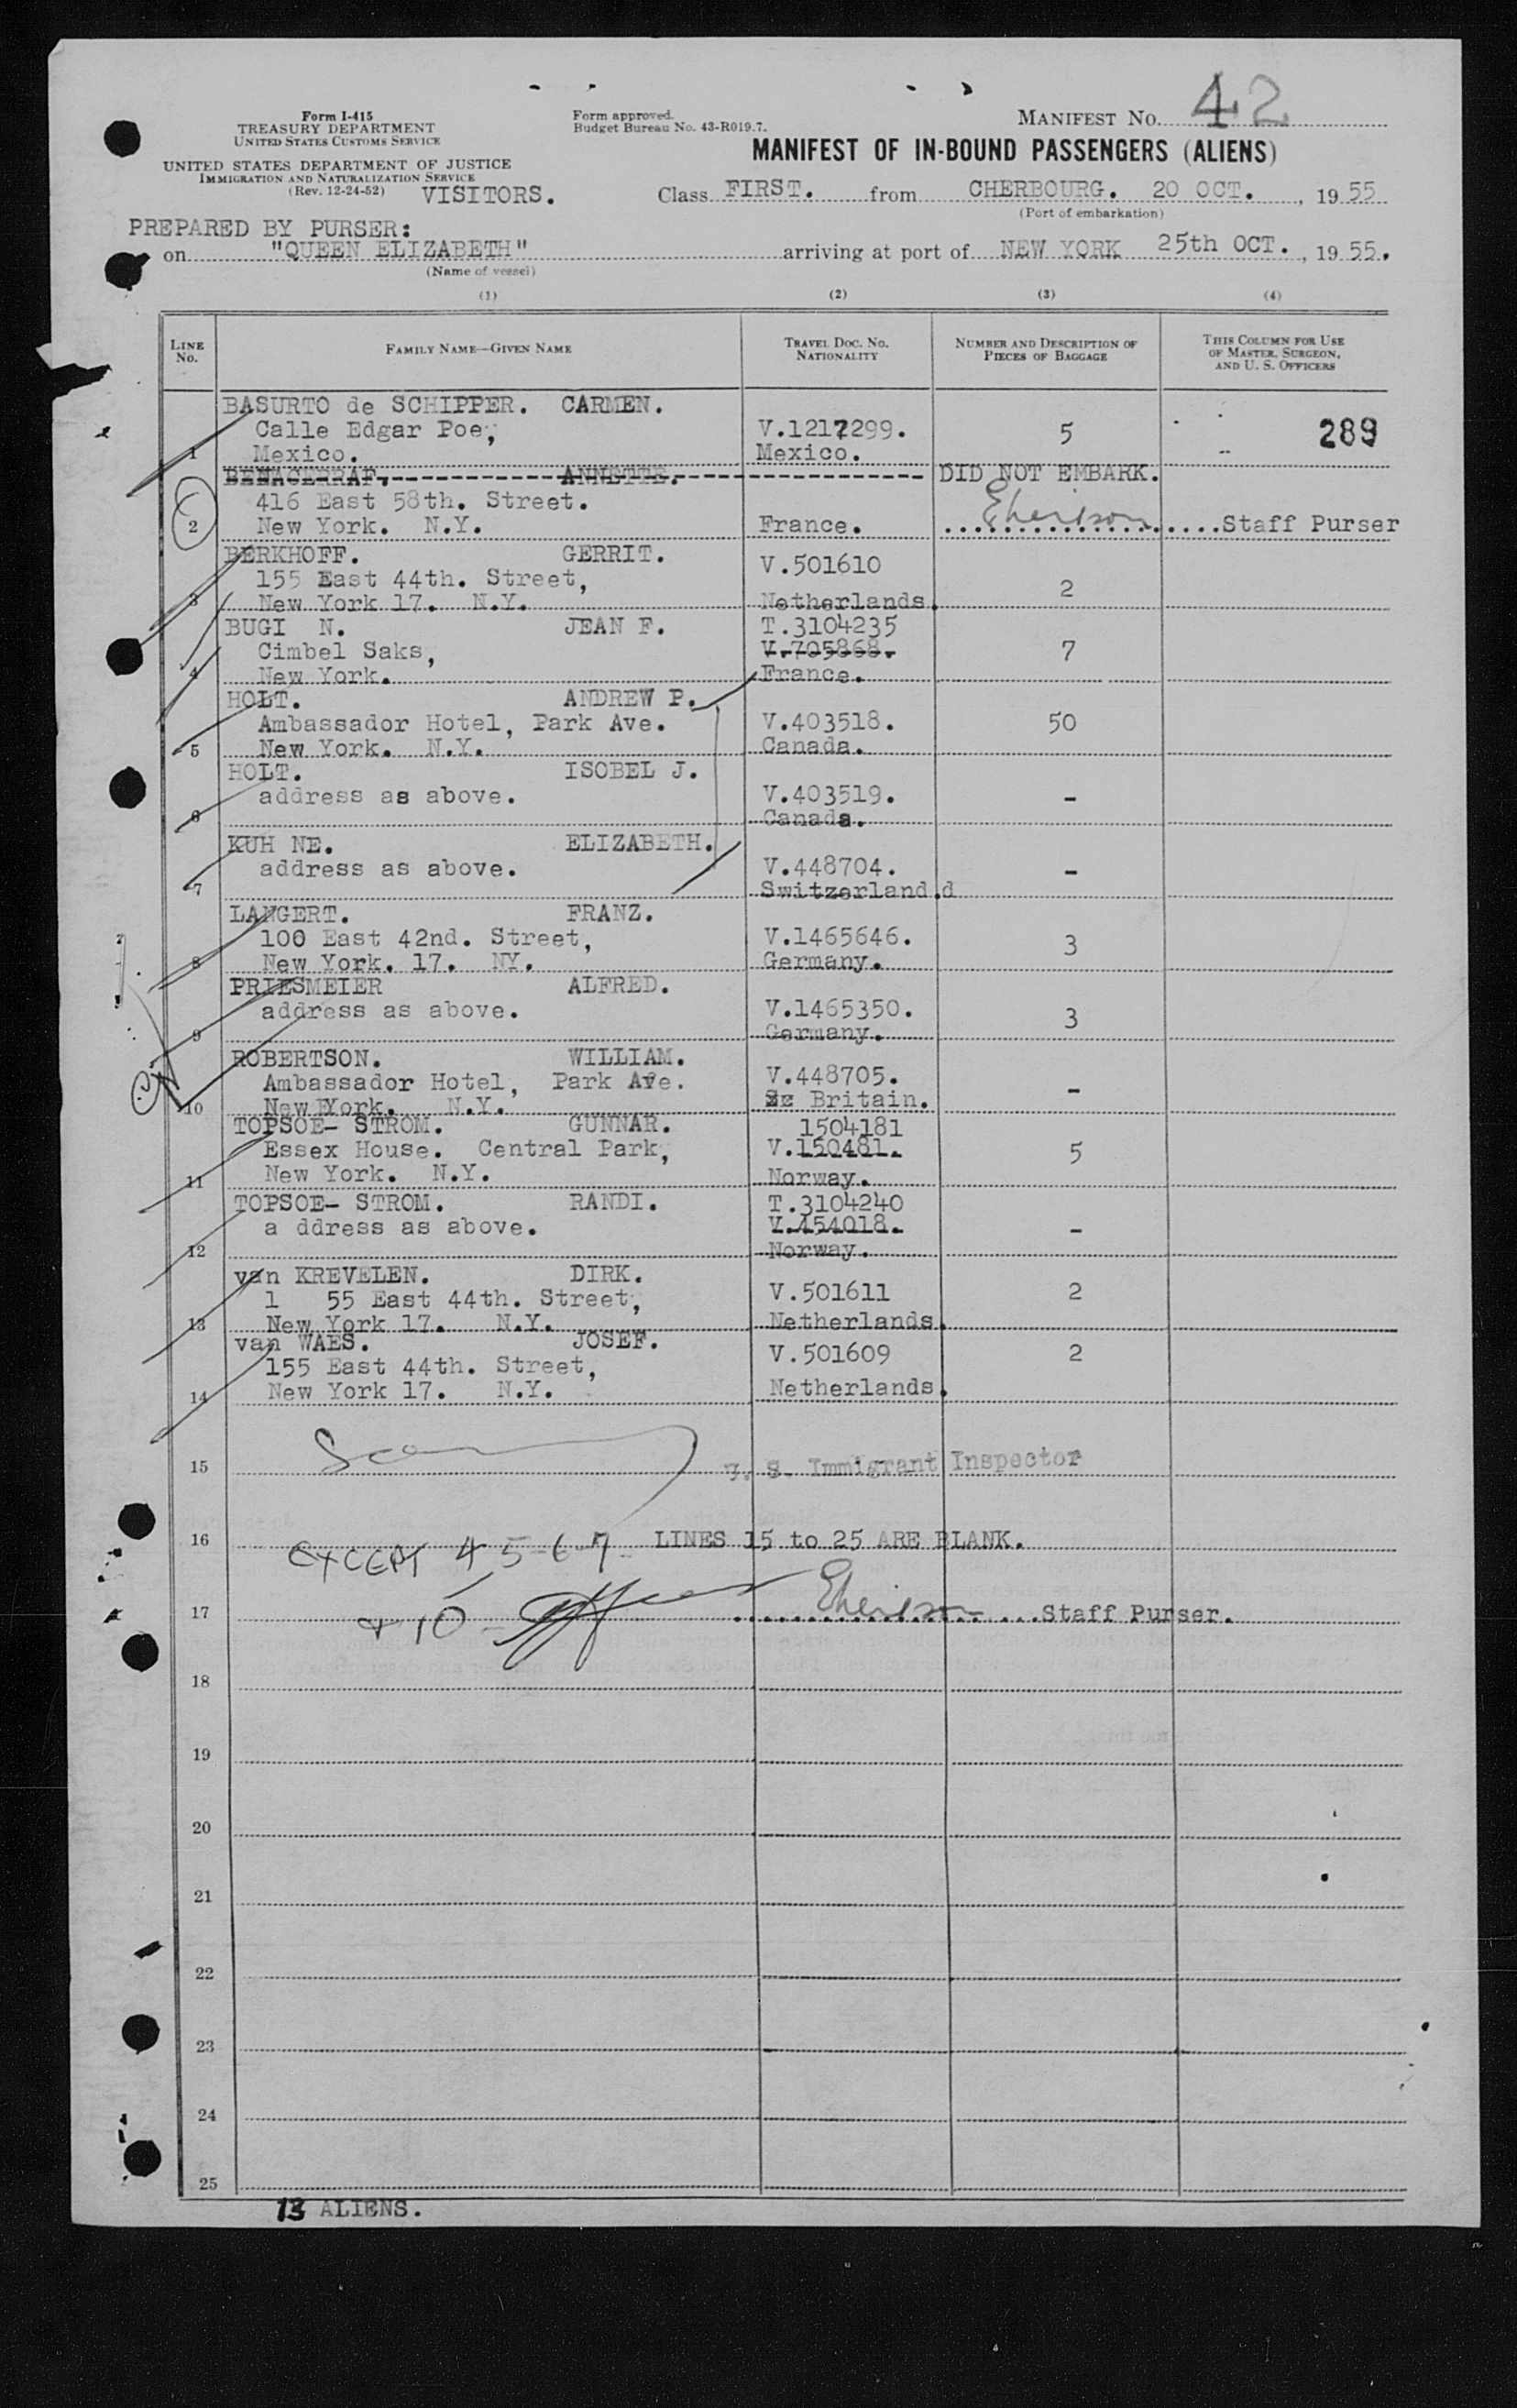 Form I-415
TREASURY DEPARTMENT
UNITED STATES CUSTOMS SERVICE
UNITED STATES DEPARTMENT OF JUSTICE
IMMIGRATION AND NATURALIZATION SERVICE
(Rev. 12-24-52) VISITORS.
Form approved.
Budget Bureau No. 43-R019.7.
MANIFEST NO. 42
MANIFEST OF IN-BOUND PASSENGERS (ALIENS)
Class FIRST. from CHERBOURG. 20 OCT., 1955
(Port of embarkation)
PREPARED BY PURSER:
on "QUEEN ELIZABETH" arriving at port of NEW YORK 25th OCT., 1955.
(Name of vessel)
(1) (2) (3) (4)
LINE No. FAMILY NAME—GIVEN NAME TRAVEL DOC. NO. NATIONALITY NUMBER AND DESCRIPTION OF PIECES OF BAGGAGE THIS COLUMN FOR USE OF MASTER, SURGEON, AND U. S. OFFICERS
BASURTO de SCHIPPER. CARMEN.
Calle Edgar Poe, V.1217299. 5 289
1 Mexico. Mexico.
BENACERRAF. ANNETTE. DID NOT EMBARK.
416 East 58th. Street.
2 New York. N.Y. France. Staff Purser
BERKHOFF. GERRIT. V.501610
155 East 44th. Street, 2
3 New York 17. N.Y. Netherlands.
BUGI N. JEAN F. T.3104235
Cimbel Saks, V.705868. 7
4 New York. France.
HOLT. ANDREW P.
Ambassador Hotel, Park Ave. V.403518. 50
5 New York. N.Y. Canada.
HOLT. ISOBEL J.
address as above. V.403519. -
6 Canada.
KUH NE. ELIZABETH.
address as above. V.448704. -
7 Switzerland.d
LANGERT. FRANZ.
100 East 42nd. Street, V.1465646. 3
8 New York. 17. NY. Germany.
PRIESMEIER ALFRED.
address as above. V.1465350. 3
9 Germany.
ROBERTSON. WILLIAM.
Ambassador Hotel, Park Ave. V.448705. -
10 New York. N.Y. Britain.
TOPSOE- STROM. GUNNAR. 1504181
Essex House. Central Park, V.150481. 5
11 New York. N.Y. Norway.
TOPSOE- STROM. RANDI. T.3104240
a ddress as above. V.454018. -
12 Norway.
van KREVELEN. DIRK.
1 55 East 44th. Street, V.501611 2
13 New York 17. N.Y. Netherlands.
van WAES. JOSEF.
155 East 44th. Street, V.501609 2
14 New York 17. N.Y. Netherlands.
15 S. Immigrant Inspector
16 LINES 15 to 25 ARE BLANK.
EXCEPT 4 5-6-7
17 + 10 Staff Purser.
18
19
20
21
22
23
24
25
13 ALIENS.